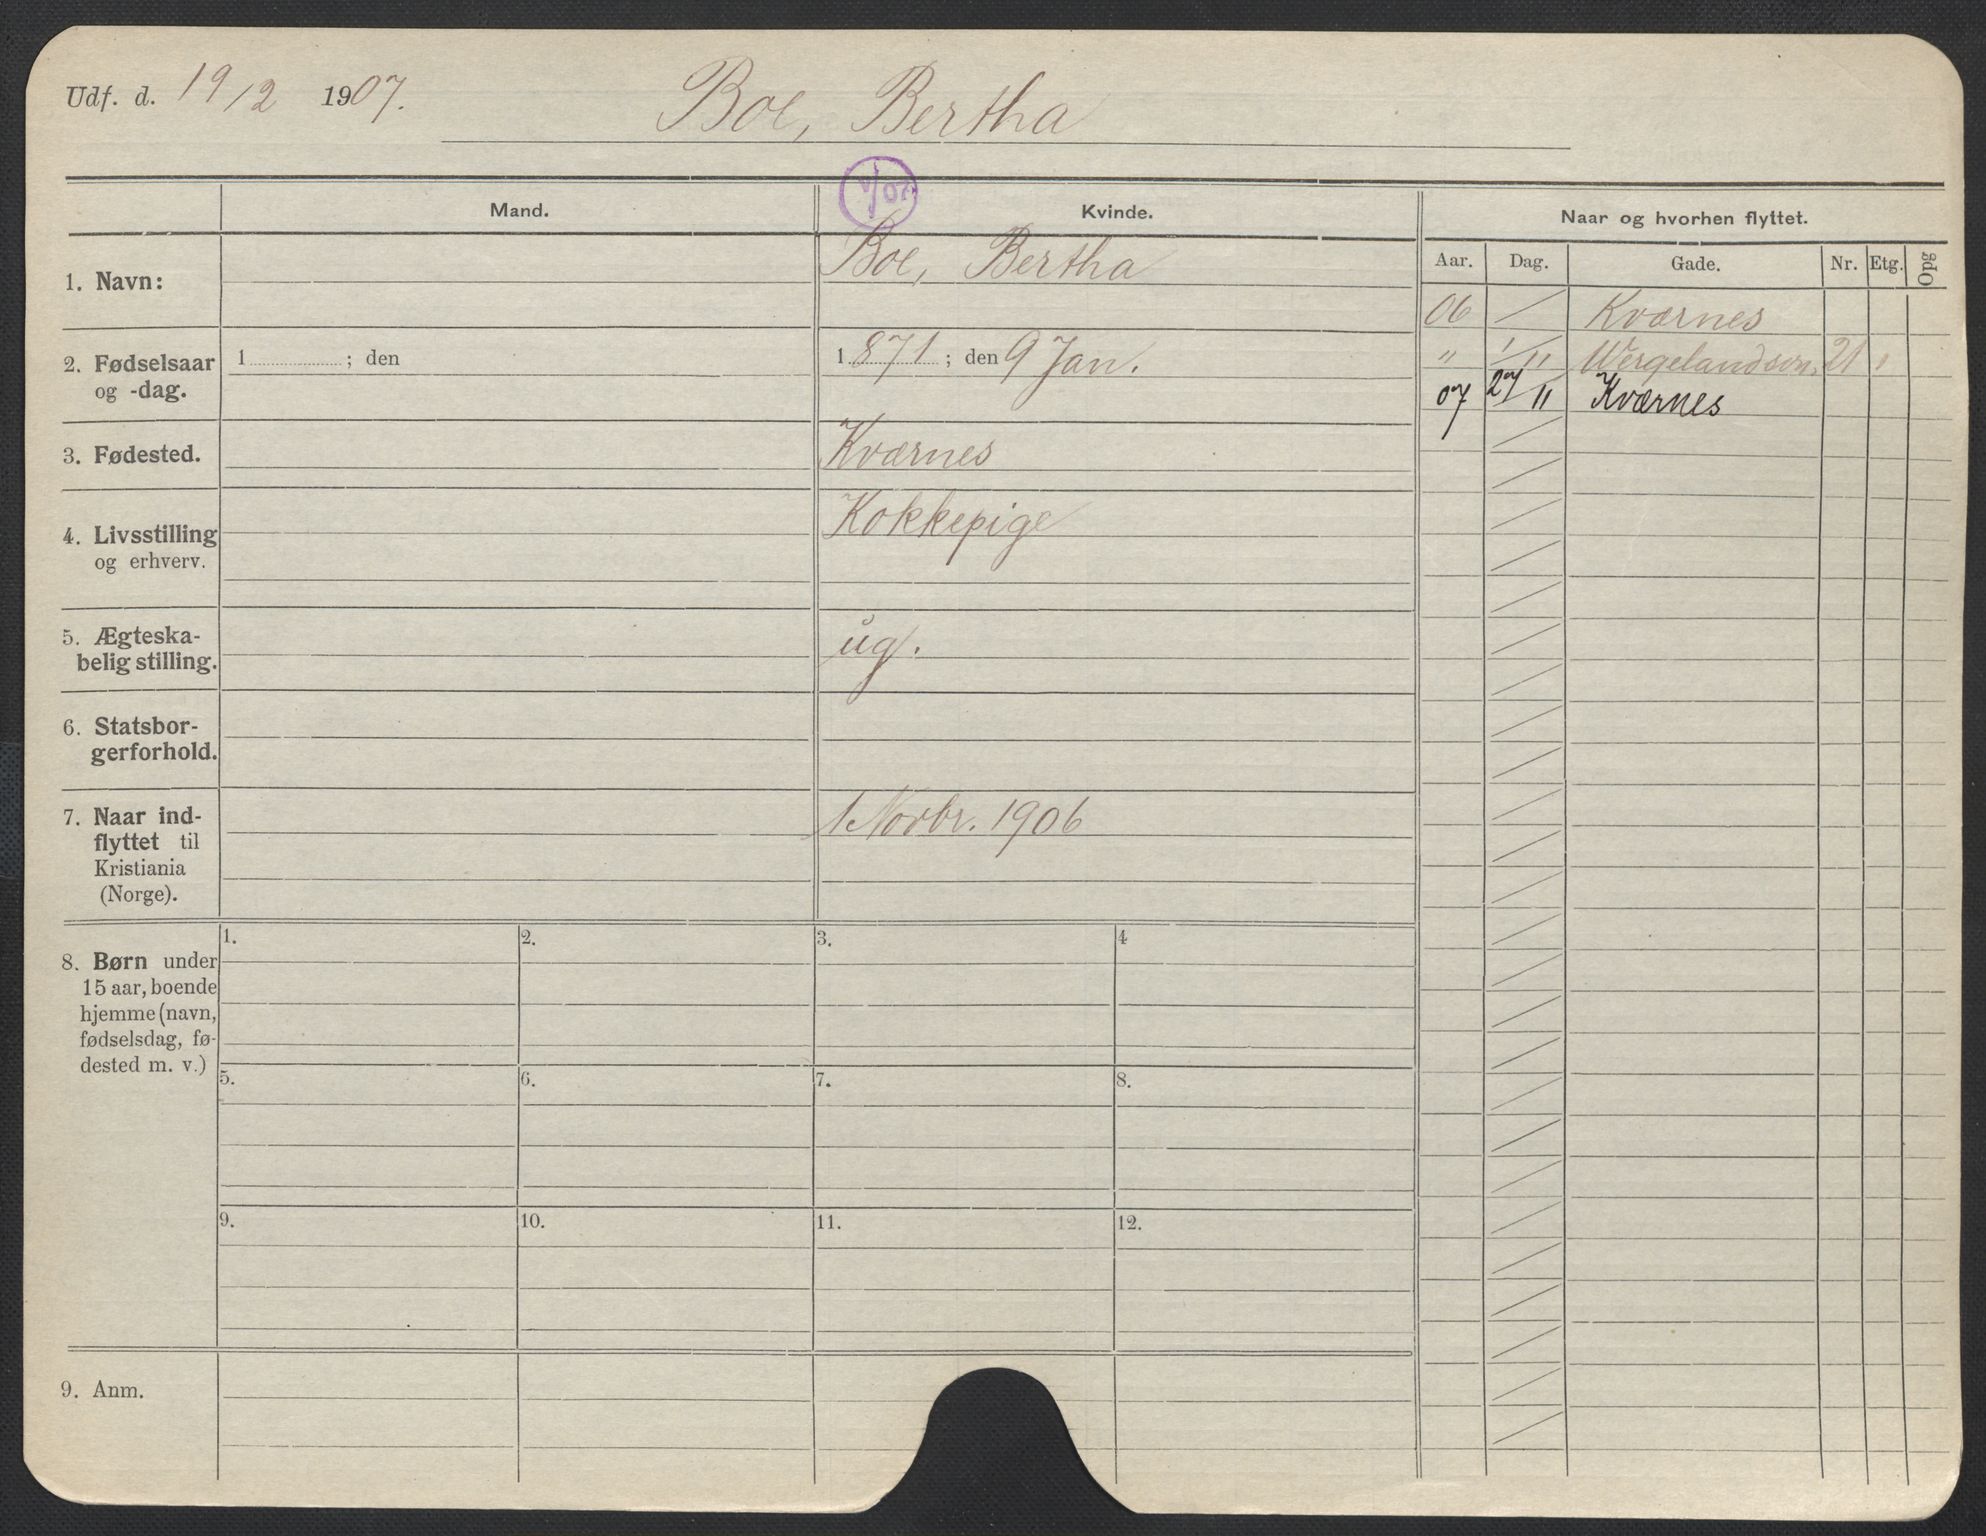 Udf. d. 19/2 1907.
Boe, Bertha
Mand.
Kvinde.
Naar og hvorhen flyttet.
Aar. Dag. Gade. Nr. Etg. Opg
1. Navn:
Boe, Bertha
06 / Kværnes
" 1/11 Wergelandsvn. 21 "
07 27/11 Kværnes
2. Fødselsaar
og -dag.
1 ; den
1871 ; den 9 Jan.
3. Fødested.
Kværnes
4. Livsstilling
og erhverv.
Kokkepige
5. Ægteska-
belig stilling.
ug.
6. Statsbor-
gerforhold.
7. Naar ind-
flyttet til
Kristiania
(Norge).
1 Novbr. 1906
8. Børn under
15 aar, boende
hjemme (navn,
fødselsdag, fø-
dested m. v.)
1. 2. 3. 4
5. 6. 7. 8.
9. 10. 11. 12.
9. Anm.